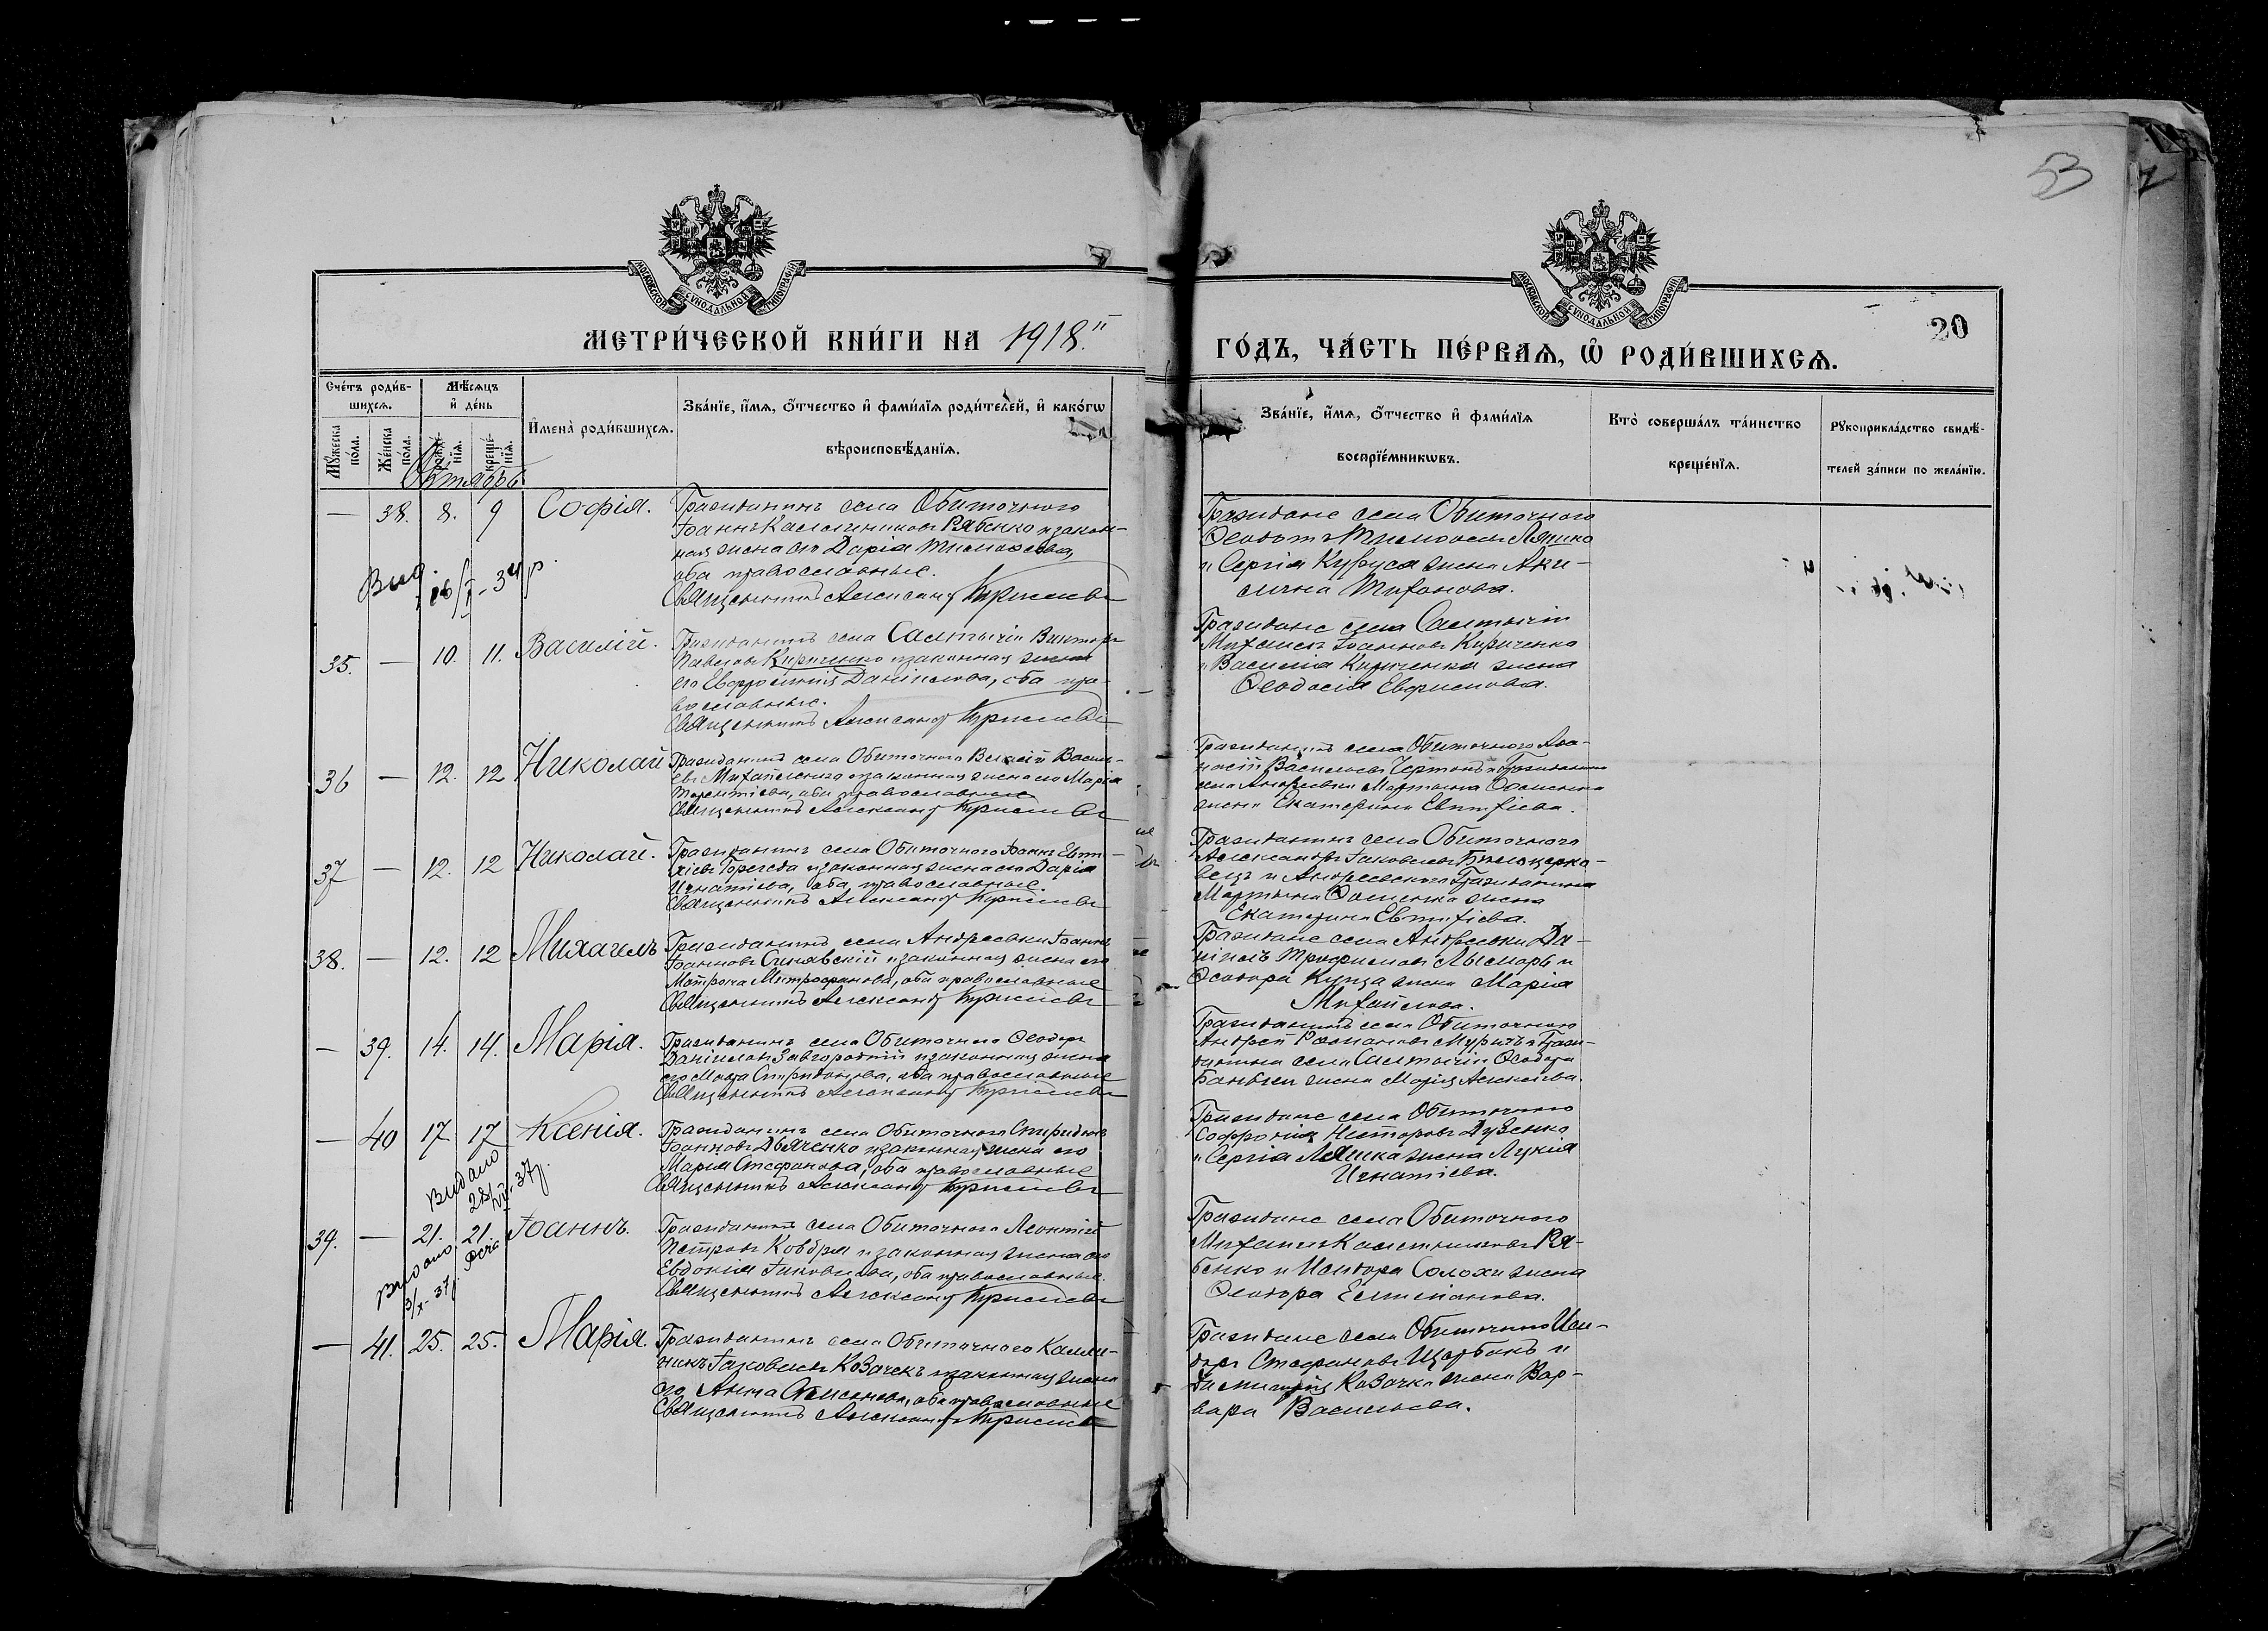 53
МОСКОВСКОЙ СУНОДАЛЬНОЙ ТИПОГРАФІИ
МОСКОВСКОЙ СУНОДАЛЬНОЙ ТИПОГРАФІИ
20
МЕТРИ́ЧЕСКОЙ КНИ́ГИ НА 1918.й
ГО́ДЪ, ЧА́СТЬ ПЕ́РВАѦ, Ѡ҆ РОДИ́ВШИХСѦ.
Сче́тъ роди́в-
шихсѧ.
Мꙋ́жеска по́ла.
Же́нска по́ла.
Мѣ́сѧцъ
и҆ де́нь
рожде́-нїѧ.
креще́-нїѧ.
И҆мена̀ роди́вшихсѧ.
Зва́нїе, и҆́мѧ, ѻ҆́тчество и҆ фами́лїѧ роди́телей, и҆ како́гѡ
вѣроисповѣ́данїѧ.
Зва́нїе, и҆́мѧ, ѻ҆́тчество и҆ фами́лїѧ
воспрїе́мникѡвъ.
Кто̀ соверша́лъ та́инство
креще́нїѧ.
Рꙋкоприкла́дство свидѣ́-
телей за́писи по жела́нїю.
Октябрь
— 38. 8. 9 Софія.
Гражданинъ села Обиточного
Іоаннъ Каллиниковъ Рябенко и закон-
ная жена его Дарія Тимофеева,
оба православные.
Священникъ Александръ
Граждане села Обиточного
Феодотъ Тимофеевъ Ляшко
и Сергія Куруса жена Аки-
лина Тихонова.
Вид. 16/I-34 р.
35. — 10. 11. Василій.
Гражданинъ села Салтычіи Викторъ
Павловъ Кириченко и законная жена
его Евфросинія Даніилова, оба пра-
вославные.
Священникъ Александръ
Граждане села Салтычіи
Михаилъ Іоанновъ Кириченко
и Василія Кириченка жена
Феодосія Ефимова.
36 — 12. 12 Николай
Гражданинъ села Обиточного Василь-
евъ и законная жена его Марія
Терентіева, оба православные
Священникъ Александръ
Гражданинъ села Обиточного Афа-
насій Васильевъ Чертокъ и Гражданина
села Андреевки Мартина жена
Екатерина Евтихіева.
37 — 12. 12 Николай.
Гражданинъ села Обиточного Іоаннъ Евти-
хіевъ и законная жена его Дарія
Игнатіева, оба православные.
Священникъ Александръ
Гражданинъ села Обиточного
Александръ Іаковлевъ Белоцерко-
вецъ и Андреевского Гражданина
Мартина жена
Екатерина Евтихіева.
38. — 12. 12 Михаилъ
Гражданинъ села Андреевки Іоаннъ
Іоанновъ Синявскій и законная жена его
Матрона Митрофанова, оба православные
Священникъ Александръ
Граждане села Андреевки Да-
ніилъ Трофимовъ Лымарь и
Феодора Куцза жена Марія
Михайлова.
— 39. 14. 14. Марія.
Гражданинъ села Обиточного Феодоръ
Даніиловъ Завгородній и законная жена
его Марѳа Спиридонова, оба православные
Священникъ Александръ
Гражданинъ села Обиточного
Андрей Романовъ и Граж-
данина села Салтычіи Феодора
жена Марія Алексіева.
— 40 17 17 Ксенія.
Гражданинъ села Обиточного Спиридонъ
Іоанновъ Дьяченко и законная жена его
Марія Стефанова, оба православные
Священникъ Александръ
Граждане села Обиточного
Софроній Несторовъ Дузенко
и Сергія Ляшка жена Лукія
Игнатіева.
Видано 28/VII-37 р.
39. — 21. 21. Іоаннъ.
Гражданинъ села Обиточного Леонтій
Петровъ Ковбря и законная жена его
Евдокія Іаковлева, оба православные.
Священникъ Александръ
Граждане села Обиточного
Михаилъ Каллиниковъ Ря-
бенко и Исидора Солохи жена
Феодора
Видано 3/X-37 р.
— 41. 25. 25. Марія.
Гражданинъ села Обиточного Калли-
никъ Іаковлевъ Козачекъ и законная жена
его Анна оба православные
Священникъ Александръ
Граждане села Обиточного Иси-
доръ Стефановъ Щербакъ и
Козачка жена Вар-
вара Васильева.